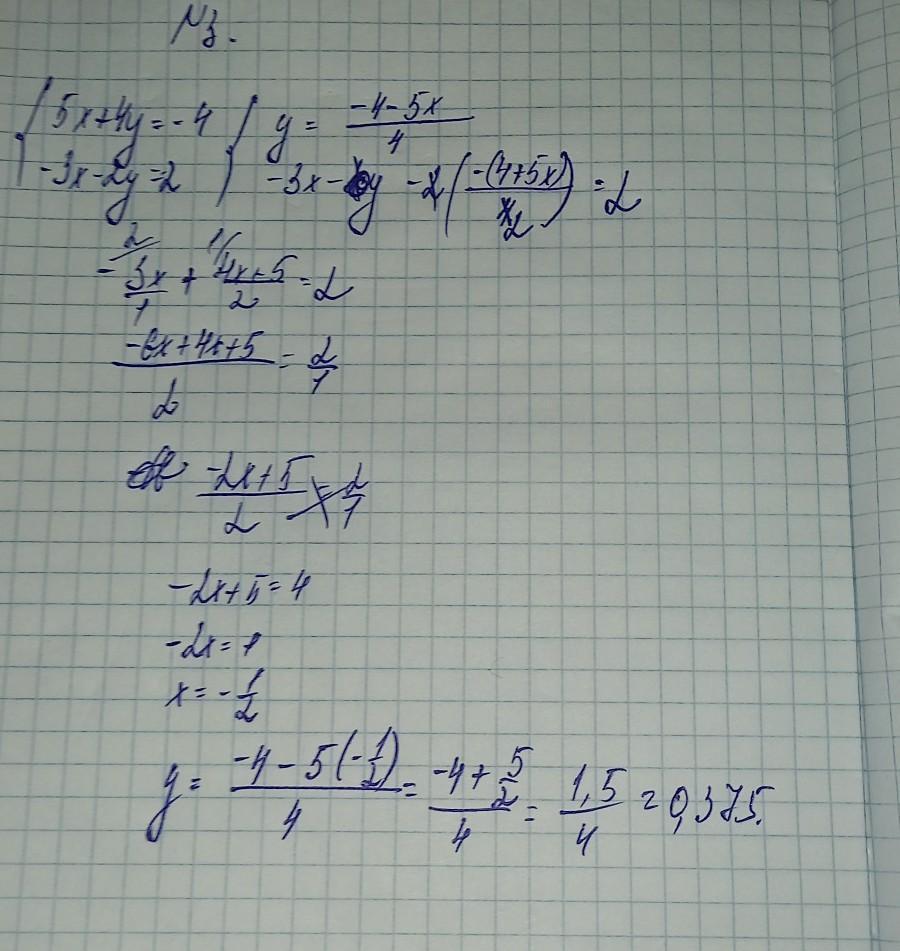 №3.
{ 5x+4y=-4 { y = (-4-5x)/4
-3x-2y=2 -3x- y -2(-(4+5x)/2) = 2
-3x/1 + (4x+5)/2 = 2
(-6x+4x+5)/2 = 2/1
(-2x+5)/2 = 2/1
-2x+5=4
-2x=1
x=-1/2
y = (-4-5(-1/2))/4 = (-4+5/2)/4 = 1,5/4 = 0,375.